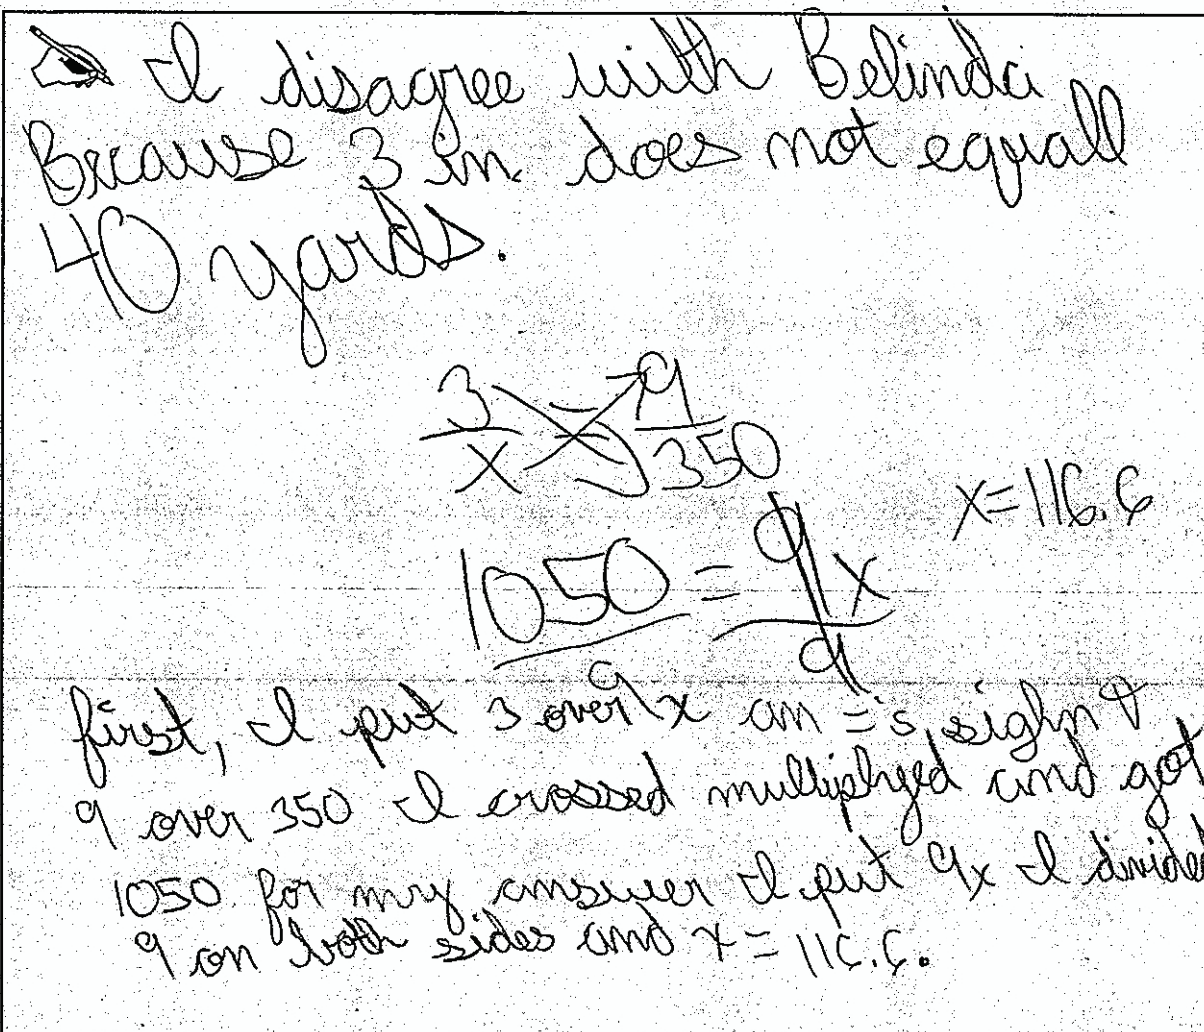 I disagree with Belinda
Because 3 in. does not equall
40 yards.
3/x = 9/350
x=116.6
1050/9 = 9x/9
first, I put 3 over x an ='s sighn &
9 over 350 I crossed multiplyed and got
1050 for my answer I put 9x I divided
9 on both sides and x = 116.6.